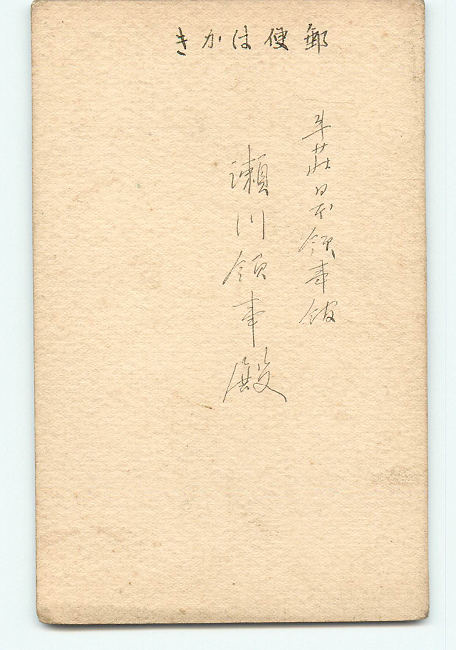 郵便はかき
牛荘日本領事館
瀬川領事殿